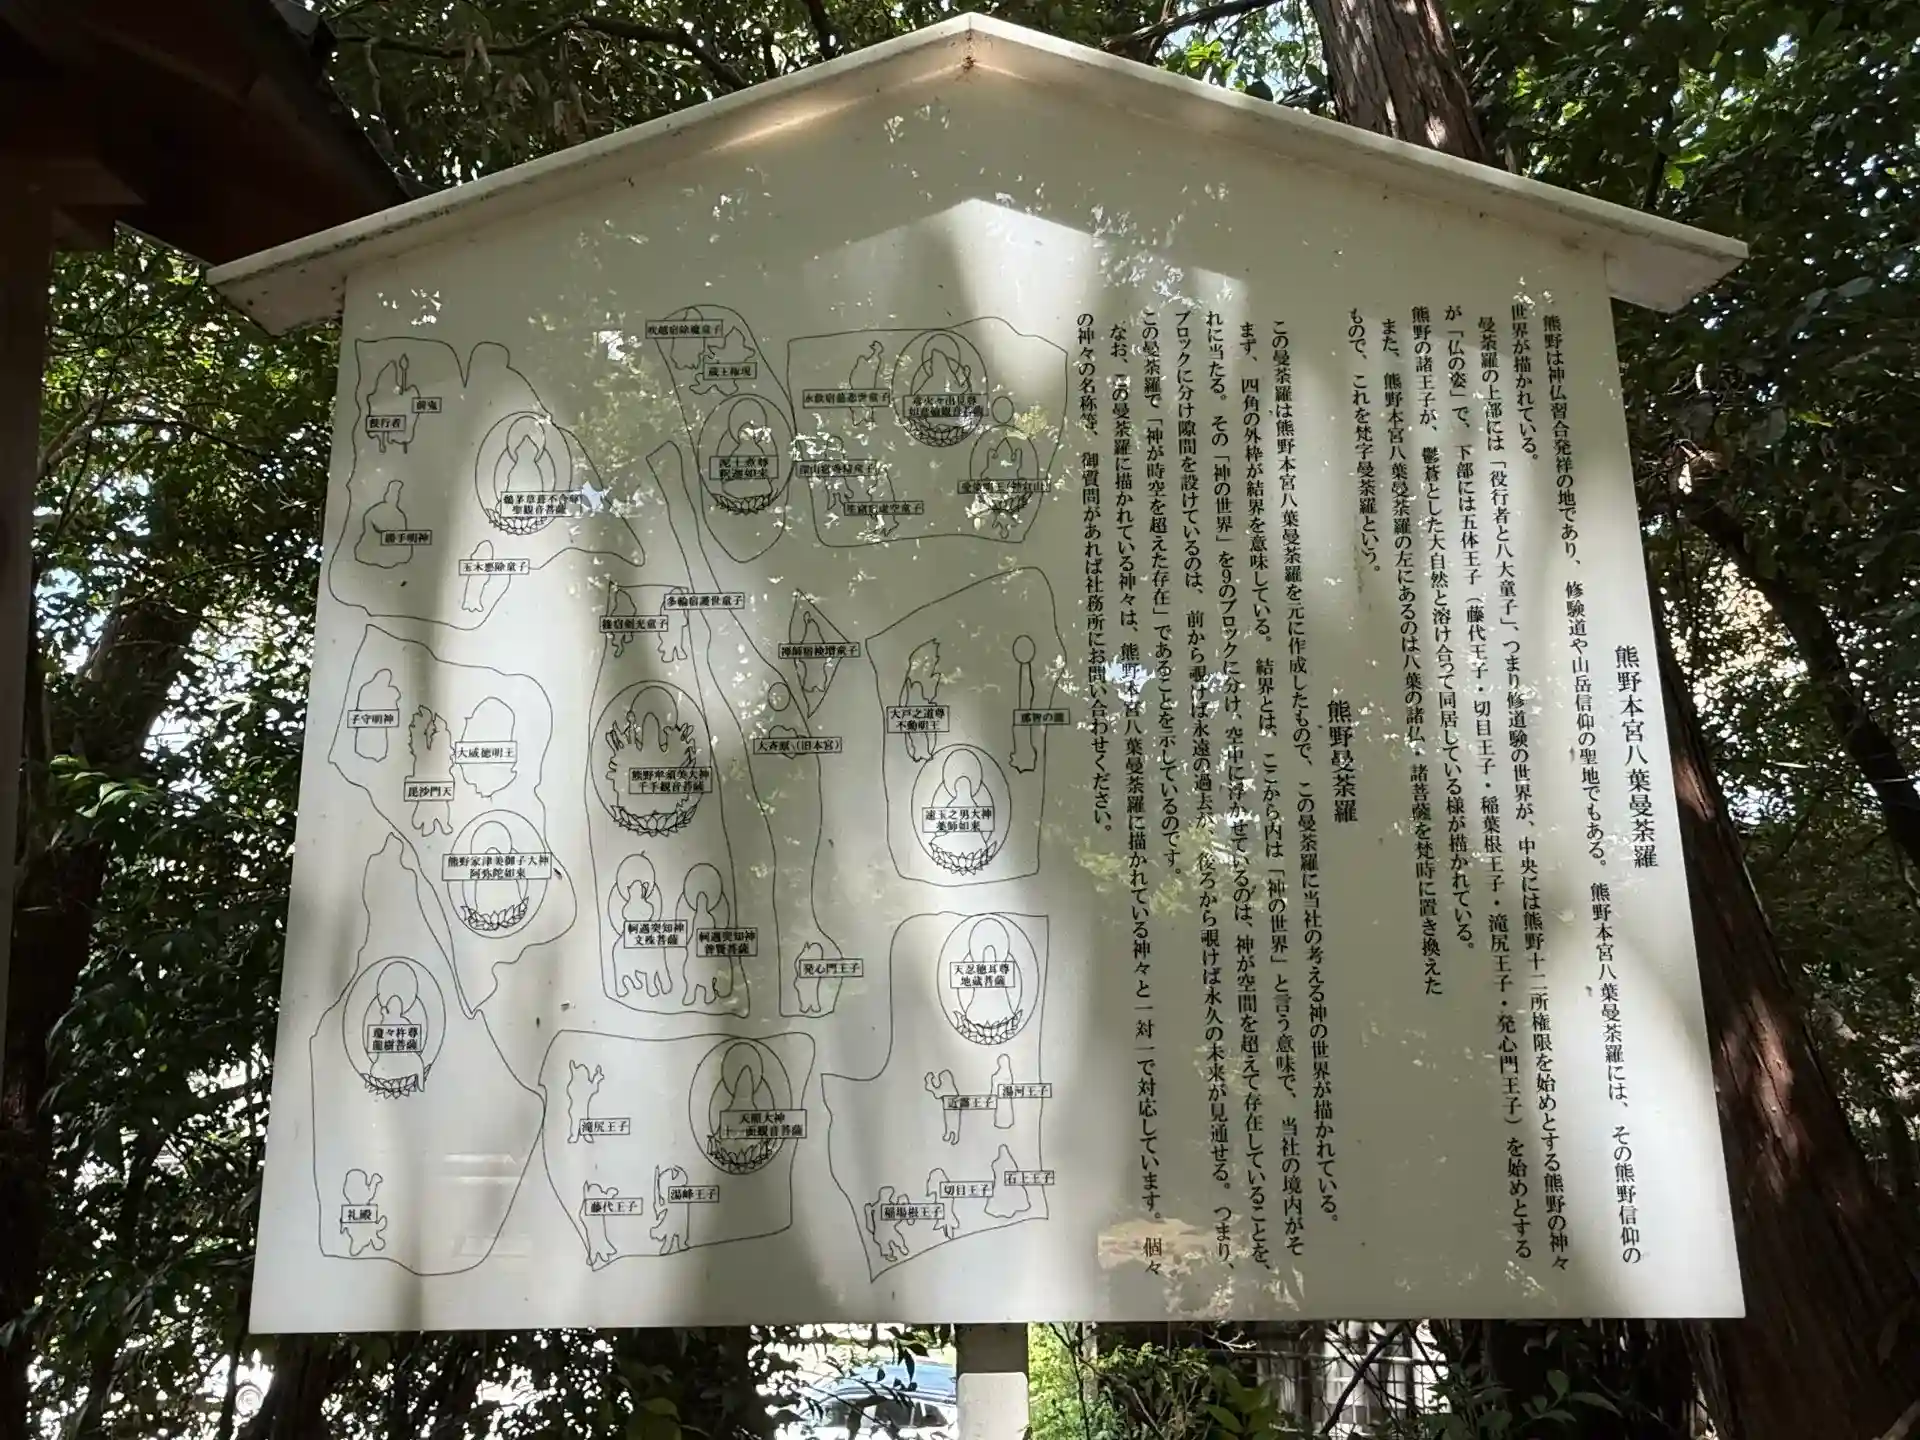 熊野本宮八葉曼荼羅
熊野は神仏習合発祥の地であり、修験道や山岳信仰の聖地でもある。熊野本宮八葉曼荼羅には、その熊野信仰の
世界が描かれている。
曼荼羅の上部には「役行者と八大童子」、つまり修道験の世界が、中央には熊野十二所権限を始めとする熊野の神々
が「仏の姿」で、下部には五体王子（藤代王子・切目王子・稲葉根王子・滝尻王子・発心門王子）を始めとする
熊野の諸王子が、鬱蒼とした大自然と溶け合って同居している様が描かれている。
また、熊野本宮八葉曼荼羅の左にあるのは八葉の諸仏・諸菩薩を梵時に置き換えた
もので、これを梵字曼荼羅という。
熊野曼荼羅
この曼荼羅は熊野本宮八葉曼荼羅を元に作成したもので、この曼荼羅に当社の考える神の世界が描かれている。
まず、四角の外枠が結界を意味している。結界とは、ここから内は「神の世界」と言う意味で、当社の境内がそ
れに当たる。その「神の世界」を9のブロックに分け、空中に浮かせているのは、神が空間を超えて存在していることを、
ブロックに分け隙間を設けているのは、前から覗けば永遠の過去が、後ろから覗けば永久の未来が見通せる。つまり、
この曼荼羅で「神が時空を超えた存在」であることを示しているのです。
なお、この曼荼羅に描かれている神々は、熊野本宮八葉曼荼羅に描かれている神々と一対一で対応しています。個々
の神々の名称等、御質問があれば社務所にお問い合わせください。
吹越宿除魔童子
蔵王権現
前鬼
役行者
聖観音菩薩
勝手明神
玉木悪除童子
泥土煮尊
釈迦如来
彦火々出見尊
如意輪観音菩薩
深山宿香精童子
笙宿虚空童子
多輪宿護世童子
篠宿剣光童子
禅師宿検増童子
大斉原（旧本宮）
大戸之道尊
不動明王
那智の瀧
子守明神
大威徳明王
毘沙門天
熊野家津美御子大神
阿弥陀如来
熊野牟須美大神
千手観音菩薩
速玉之男大神
薬師如来
軻遇突知神
文殊菩薩
軻遇突知神
普賢菩薩
発心門王子
天忍穂耳尊
地蔵菩薩
瓊々杵尊
龍樹菩薩
天照大神
十一面観音菩薩
滝尻王子
藤代王子
湯峰王子
近露王子
湯河王子
切目王子
石上王子
稲場根王子
礼殿